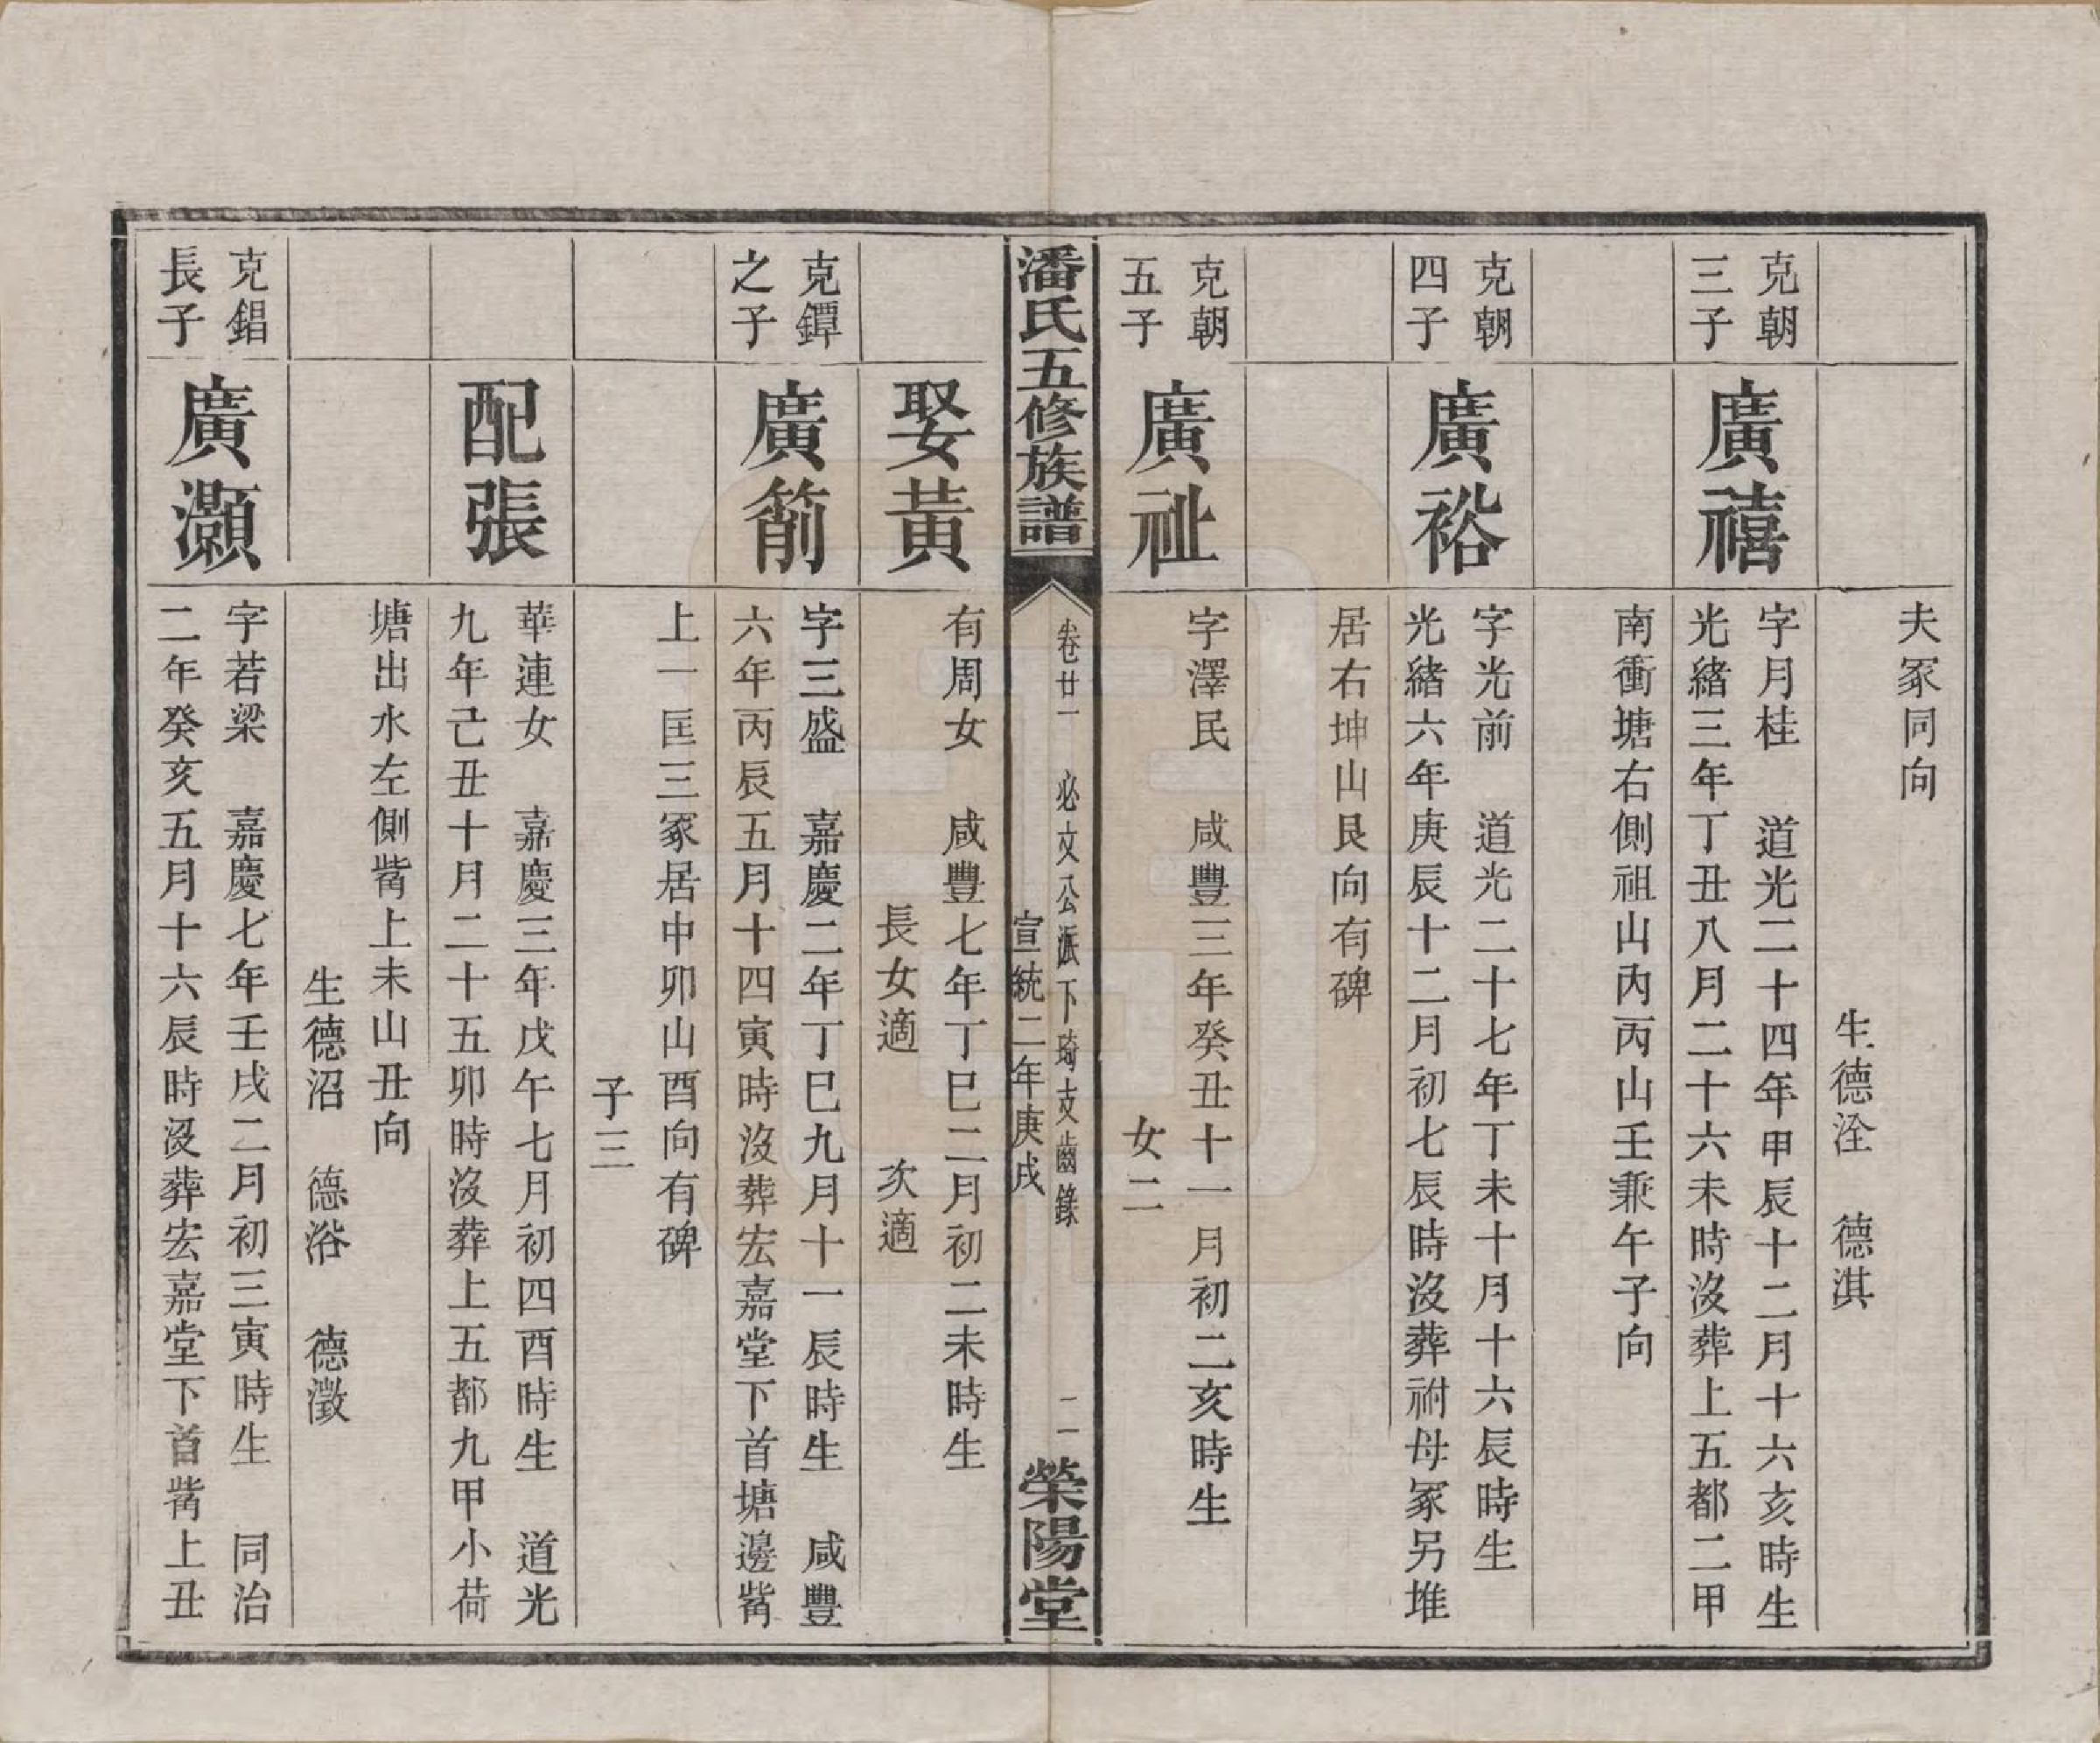 夫冢同向
生德洤　德淇
克朝
三子
廣禧
字月桂　道光二十四年甲辰十二月十六亥時生
光緒三年丁丑八月二十六未時沒葬上五都二甲
南衝塘右側祖山內丙山壬兼午子向
克朝
四子
廣裕
字光前　道光二十七年丁未十月十六辰時生
光緒六年庚辰十二月初七辰時沒葬祔母冢另堆
居右坤山艮向有碑
克朝
五子
廣祉
字澤民　咸豐三年癸丑十一月初二亥時生
女二
潘氏五修族譜
卷廿一　必文公派下琦支齒錄
宣統二年庚戌
二
榮陽堂
娶黃
有周女　咸豐七年丁巳二月初二未時生
長女適　次適
克鐔
之子
廣箾
字三盛　嘉慶二年丁巳九月十一辰時生　咸豐
六年丙辰五月十四寅時沒葬宏嘉堂下首塘邊觜
上一匡三冢居中卯山酉向有碑
子三
配張
華連女　嘉慶三年戊午七月初四酉時生　道光
九年己丑十月二十五卯時沒葬上五都九甲小荷
塘出水左側觜上未山丑向
生德沼　德浴　德澂
克錩
長子
廣灝
字若梁　嘉慶七年壬戌二月初三寅時生　同治
二年癸亥五月十六辰時沒葬宏嘉堂下首觜上丑